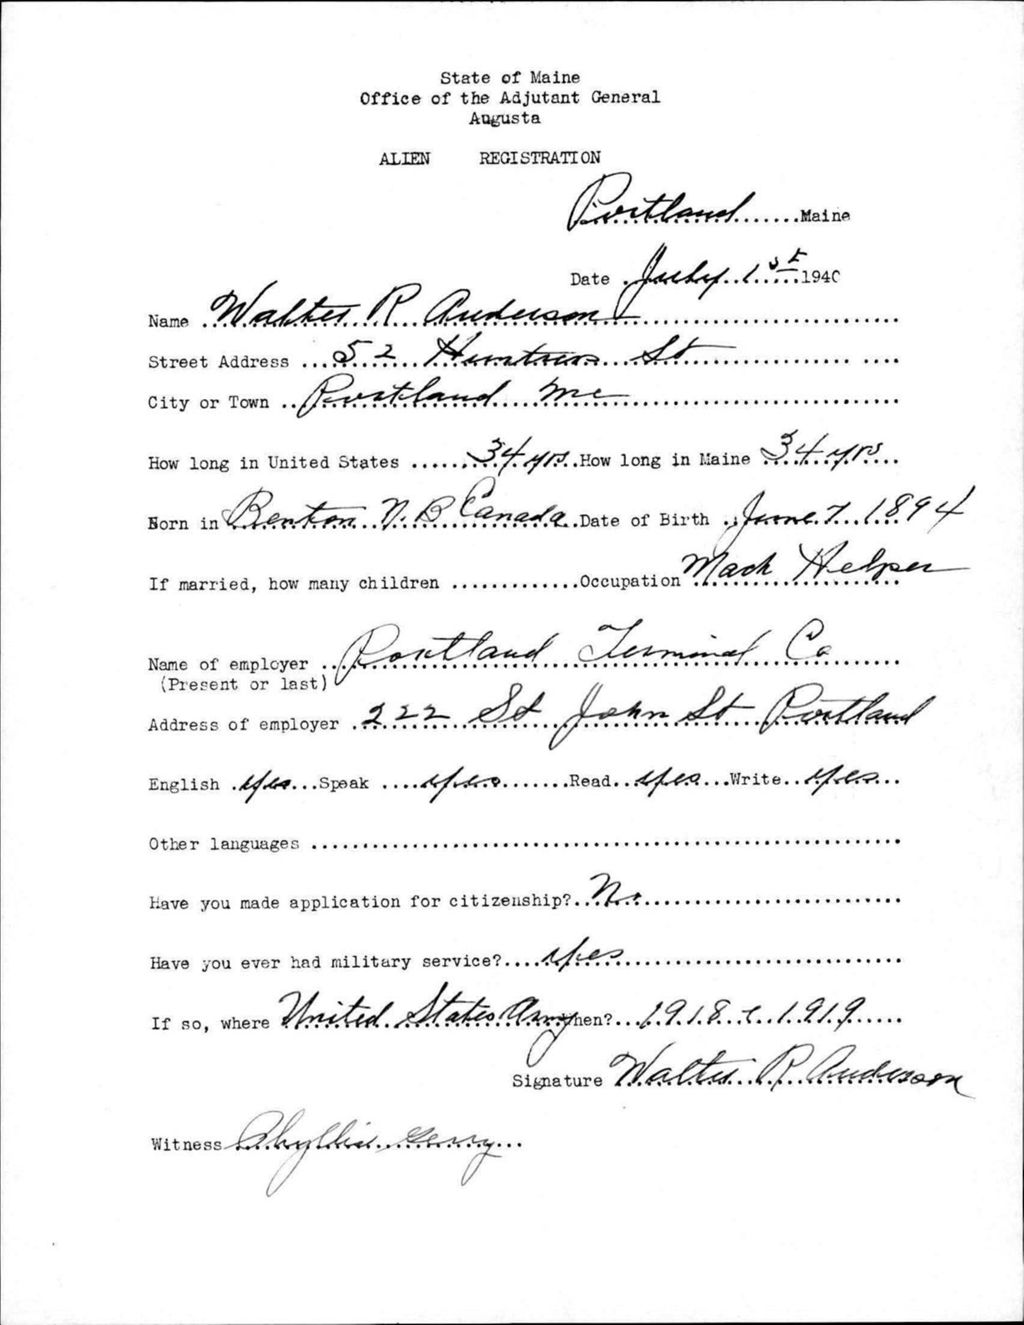 State of Maine
Office of the Adjutant General
Augusta
ALIEN REGISTRATION
Portland.......Maine
Date .July 1st 1940
Name ..Walter R Anderson
Street Address ...52 St
City or Town ..Portland Me
How long in United States ......34 yrs..How long in Maine 34 yrs...
Born in Benton N.B Canada..Date of Birth ..June 7 1894
If married, how many children .............Occupation Mach Helper
Name of employer ..Portland Terminal Co
(Present or last)
Address of employer .222 St John St Portland
English .yes...Speak ....yes........Read..yes...Write..yes...
Other languages ........................................................
Have you made application for citizenship?..No..............................
Have you ever had military service?....yes................................
If so, where United States Army hen?...1918 - 1919.....
Signature Walter R Anderson
Witness Phyllis Gerry...